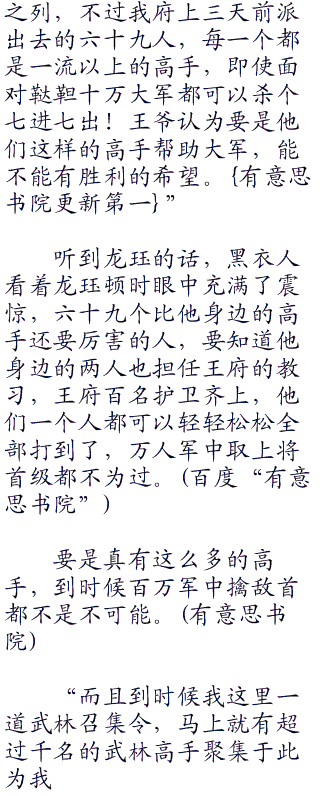 之列，不过我府上三天前派
出去的六十九人，每一个都
是一流以上的高手，即使面
对鞑靼十万大军都可以杀个
七进七出！王爷认为要是他
们这样的高手帮助大军，能
不能有胜利的希望。{有意思
书院更新第一}”
听到龙珏的话，黑衣人
看着龙珏顿时眼中充满了震
惊，六十九个比他身边的高
手还要厉害的人，要知道他
身边的两人也担任王府的教
习，王府百名护卫齐上，他
们一个人都可以轻轻松松全
部打到了，万人军中取上将
首级都不为过。(百度“有意
思书院”)
要是真有这么多的高
手，到时候百万军中擒敌首
都不是不可能。(有意思书
院)
“而且到时候我这里一
道武林召集令，马上就有超
过千名的武林高手聚集于此
为我